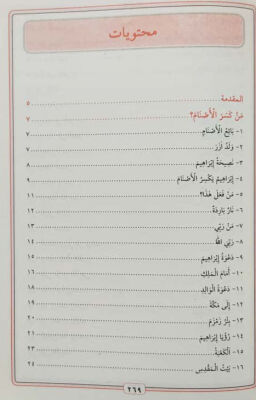 محتويات
المقدمة ..... ٥
مَنْ كَسَرَ الْأَصْنَامَ؟ ..... ٧
١- بَائِعُ الْأَصْنَامِ ..... ٧
٢- وَلَدُ آزَرَ ..... ٧
٣- نَصِيحَةُ إِبْرَاهِيمَ ..... ٨
٤- إِبْرَاهِيمُ يَكْسِرُ الْأَصْنَامَ ..... ٩
٥- مَنْ فَعَلَ هَذَا؟ ..... ١١
٦- نَارٌ بَارِدَةٌ ..... ١٢
٧- مَنْ رَبِّي ..... ١٣
٨- رَبِّي اللَّهُ ..... ١٤
٩- دَعْوَةُ إِبْرَاهِيمَ ..... ١٥
١٠- أَمَامَ الْمَلِكِ ..... ١٦
١١- دَعْوَةُ الْوَالِدِ ..... ١٨
١٢- إِلَى مَكَّةَ ..... ١٩
١٣- بِئْرُ زَمْزَمَ ..... ٢٠
١٤- رُؤْيَا إِبْرَاهِيمَ ..... ٢١
١٥- الْكَعْبَةُ ..... ٢٣
١٦- بَيْتُ الْمَقْدِسِ ..... ٢٤
٢٦٩